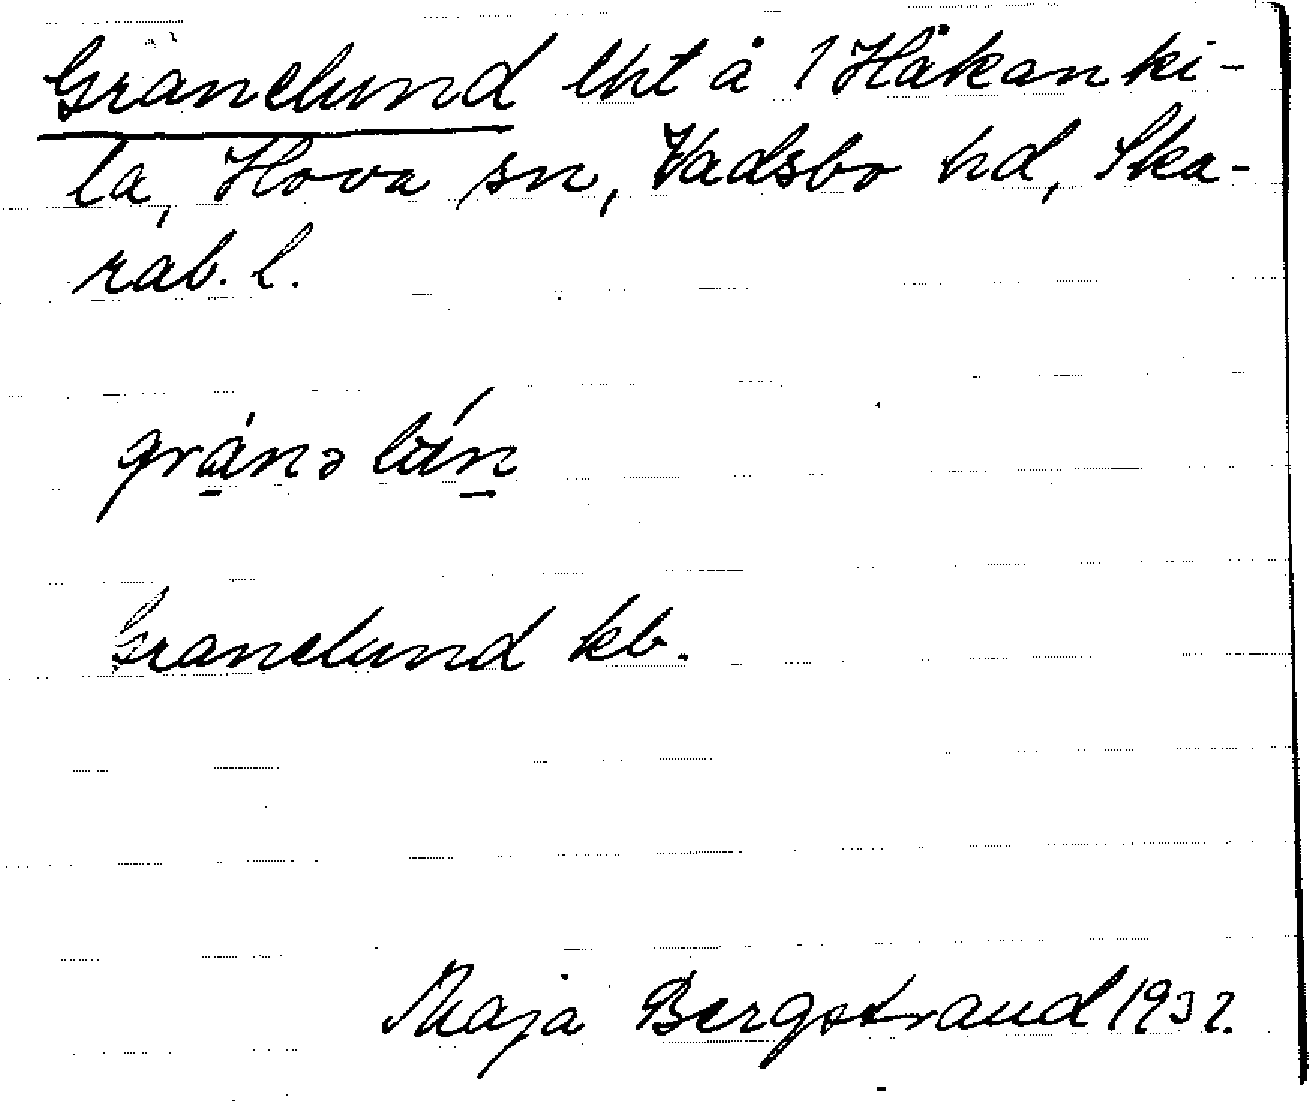 Granelund lht å 1 Håkanki-
la, Hova sn, Vadsbo hd, Ska-
rab. l.
gránə
Granelund kb.
Maja Bergstrand 1932.